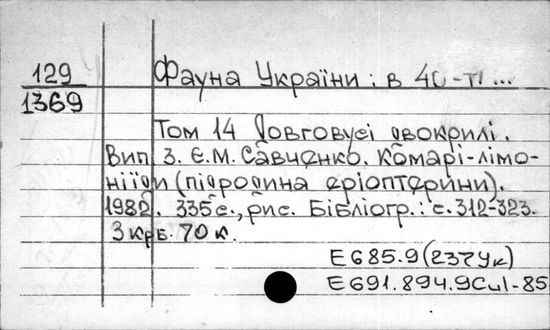 129
1369
Фауна України: в 40-ти ...
Том 14 Довговусі двокрилі.
Вип. 3. Є.М. Савченко. Комарі-лімо-
ніїди (підродина еріоптерини).
1982. 335 с., рис. Бібліогр.: с. 312-323.
3 крб. 70 к.
Е685.9(237Ук)
Е691.894.9Cul-85